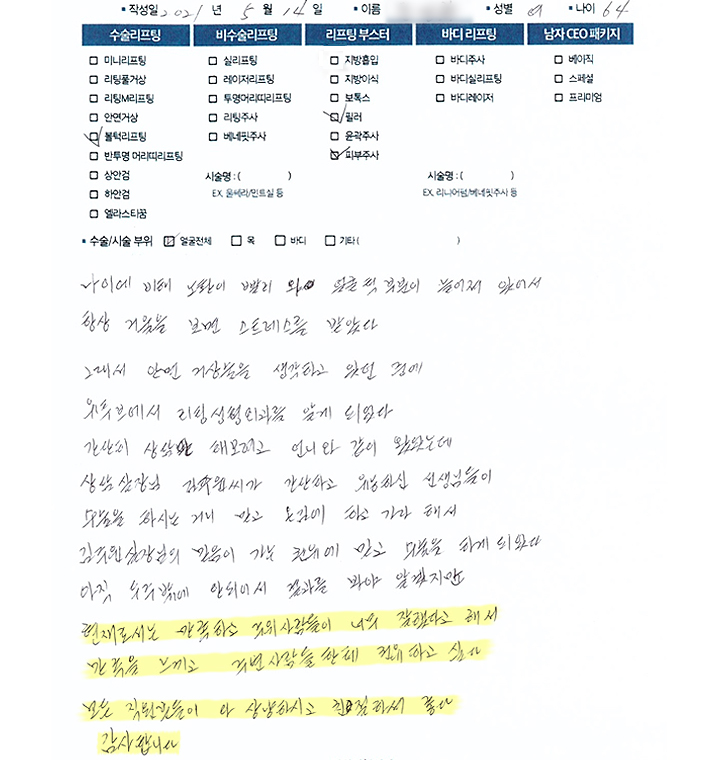 작성일 2021 년 5 월 14 일 이름 성별 여 나이 64
수술리프팅 비수술리프팅 리프팅 부스터 바디 리프팅 남자 CEO 패키지
미니리프팅 실리프팅 지방흡입 바디주사 베이직
리팅풀거상 레이저리프팅 지방이식 바디실리프팅 스페셜
리팅M리프팅 투명머리띠리프팅 보톡스 바디레이저 프리미엄
안면거상 리팅주사 필러
볼턱리프팅 베네핏주사 윤곽주사
반투명 머리띠리프팅 피부주사
상안검 시술명 : ( ) 시술명 : ( )
하안검 EX. 울쎄라/민트실 등 EX. 리니어펌/베네핏주사 등
엘라스티꿈
수술/시술 부위 얼굴전체 목 바디 기타 ( )
나이에 비해 노환이 빨리 와 얼굴 턱 부분이 늘어져 있어서
항상 거울을 보면 스트레스를 받았다
그래서 안면 거상술을 생각하고 있던 중에
유튜브에서 리팅성형외과를 알게 되었다
간단히 상담만 해보려고 언니와 같이 왔었는데
상담실장님 김주원씨가 간단하고 유능하신 선생님들이
수술을 하시는 거니 믿고 온김에 하고 가라 해서
김주원실장님의 믿음이 가는 권유에 믿고 수술을 하게 되었다
아직 수주밖에 안되어서 결과를 봐야 알겠지만
현재로서는 만족하고 주위사람들이 너무 잘됐다고 해서
만족을 느끼고 주변 사람들한테 권유 하고 싶다
모든 직원분들이 다 상냥하시고 친절하셔 좋다
감사합니다